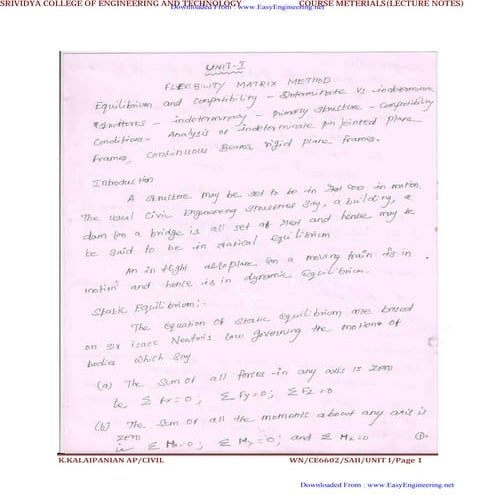 SRIVIDYA COLLEGE OF ENGINEERING AND TECHNOLOGY COURSE METERIALS(LECTURE NOTES)
Downloaded From : www.EasyEngineering.net
UNIT-I
FLEXIBILITY MATRIX METHOD
Equilibrium and compatibility - Determinate Vs indeterminate
structures - indeterminacy - Primary structure - compatibility
conditions - Analysis of indeterminate pin jointed plane
frames, continuous Beams, rigid plane frames.
Introduction
A structure may be set to be in rest (or) in motion.
The usual civic Engineering structures say, a building, a
dam (or) a bridge is all set at rest and hence may
be said to be in statical equilibrium
An in flight aeroplane (or) a moving train is in
motion and hence is in dynamic equilibrium.
Static Equilibrium:-
The equation of static equilibrium are based
on sir isaac Newton's law governing the motion of
bodies which say
(a) The sum of all forces in any axis is zero
ie Σ Fx=0; Σ Fy=0; Σ Fz=0
(b) The sum of all the moments about any axis is
zero
ie Σ Mx=0; Σ My=0; and Σ Mz=0
K.KALAIPANIAN AP/CIVIL WN/CE6602/SAII/UNIT I/Page 1
Downloaded From : www.EasyEngineering.net